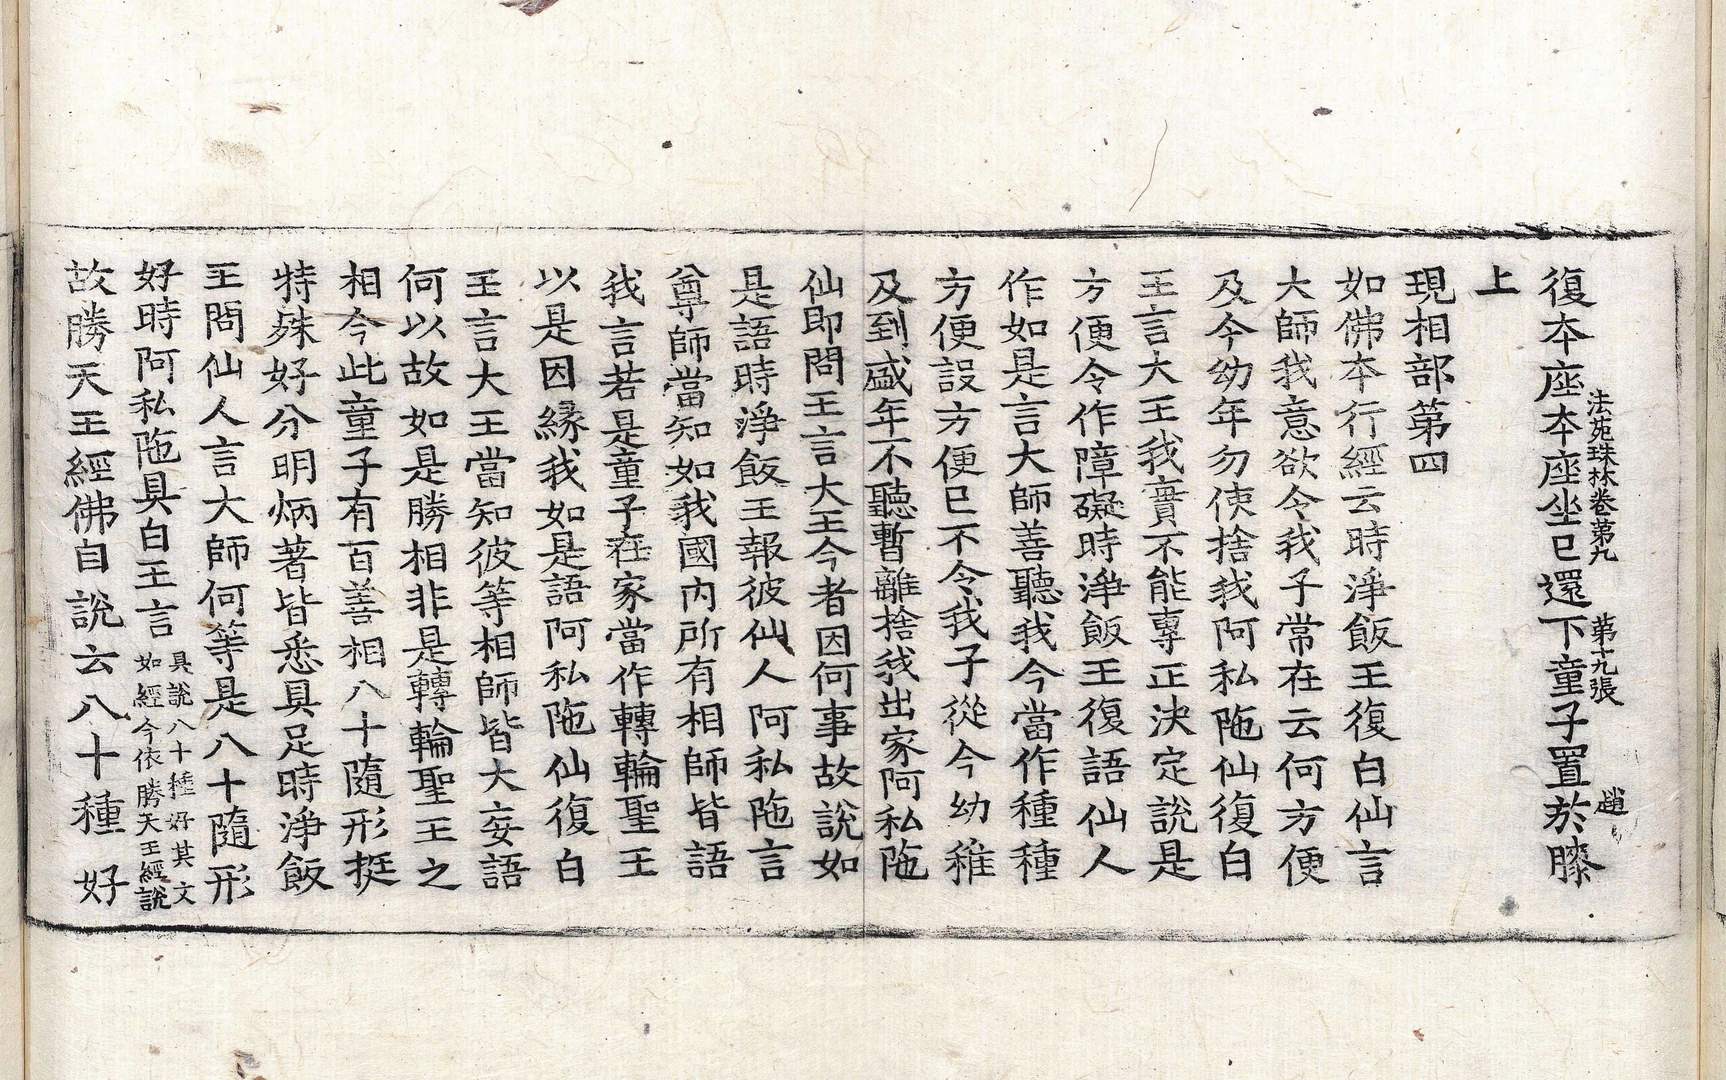 法苑珠林卷第九　第十九張　趙
復本座本座坐已還下童子置於膝
上
現相部第四
如佛本行經云時淨飯王復白仙言
大師我意欲令我子常在云何方便
及今幼年勿使捨我阿私陁仙復白
王言大王我實不能專正決定說是
方便令作障礙時淨飯王復語仙人
作如是言大師善聽我今當作種種
方便設方便已不令我子從今幼稚
及到盛年不聽暫離捨我出家阿私陁
仙即問王言大王今者因何事故說如
是語時淨飯王報彼仙人阿私陁言
尊師當知如我國內所有相師皆語
我言若是童子在家當作轉輪聖王
以是因緣我如是語阿私陁仙復白
王言大王當知彼等相師皆大妄語
何以故如是勝相非是轉輪聖王之
相今此童子有百善相八十隨形挺
特殊好分明炳著皆悉具足時淨飯
王問仙人言大師何等是八十隨形
好時阿私陁具白王言具說八十種好其文
如經今依勝天王經說
故勝天王經佛自說云八十種好